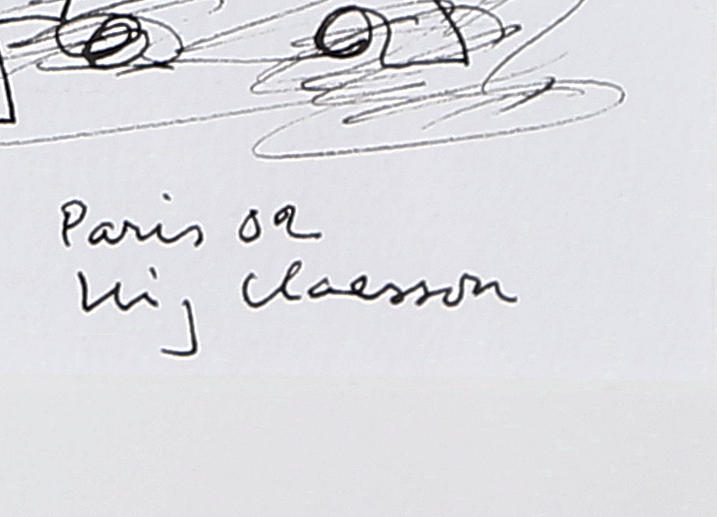 Paris 02
Stig Claesson